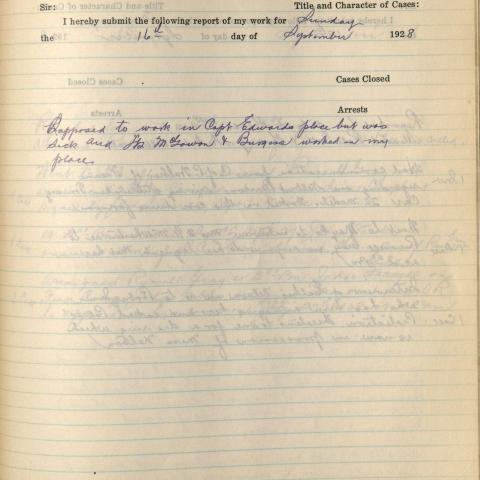 Sir: Title and Character of Cases:
I hereby submit the following report of my work for Sunday
the 16th day of September 1928
Cases Closed
Arrests
Supposed to work in Capt Edwards place but was
sick and McGowan & Burgess worked in my
place